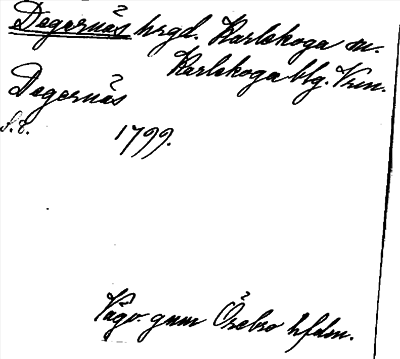 Degernäs hrgd. Karlskoga sn.
Karlskoga blg. Vrm.
Degernäs
f.d. 1799.
Vägv. gnm Örebro hfdm.